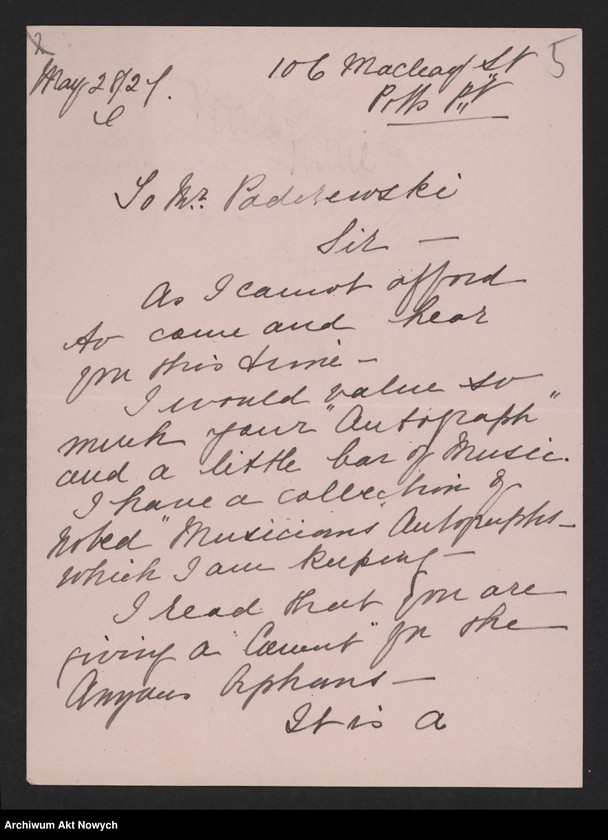 2
5
May 28/27.
106 Macleay St
Potts Pt
To Mr. Paderewski
Sir —
As I cannot afford
to come and hear
you this time —
I would value so
much your "Autograph"
and a little bar of Music.
I have a collection of
Noted "Musicians" Autographs —
which I am keeping —
I read that you are
giving a "Concert" for the
Orphans —
It is a
Archiwum Akt Nowych